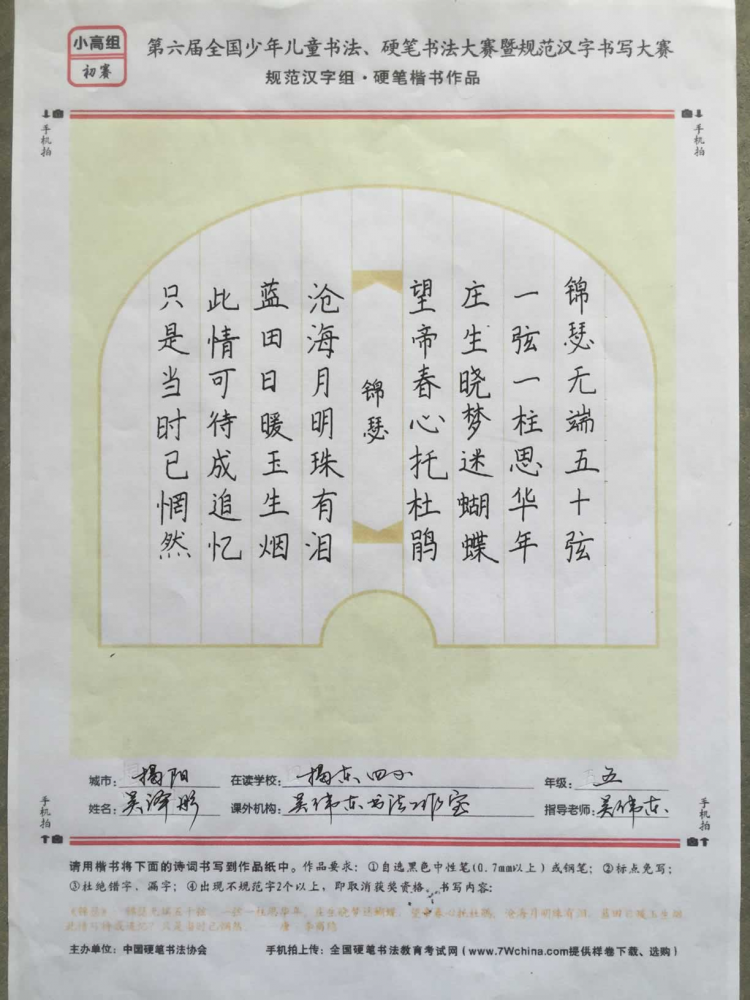 小高组
初赛
第六届全国少年儿童书法、硬笔书法大赛暨规范汉字书写大赛
规范汉字组·硬笔楷书作品
手机拍
手机拍
锦瑟无端五十弦
一弦一柱思华年
庄生晓梦迷蝴蝶
望帝春心托杜鹃
锦瑟
沧海月明珠有泪
蓝田日暖玉生烟
此情可待成追忆
只是当时已惘然
城市：揭阳 在读学校：揭东四小 年级：五
姓名：吴泽彤 课外机构：吴伟东书法工作室 指导老师：吴伟东
手机拍
手机拍
请用楷书将下面的诗词书写到作品纸中。作品要求：①自选黑色中性笔(0.7mm以上)或钢笔；②标点免写；
③杜绝错字，漏字；④出现不规范字2个以上，即取消获奖资格。书写内容：
《锦瑟》 锦瑟无端五十弦，一弦一柱思华年。庄生晓梦迷蝴蝶，望帝春心托杜鹃。沧海月明珠有泪，蓝田日暖玉生烟。
此情可待成追忆？只是当时已惘然。 唐 李商隐
主办单位：中国硬笔书法协会 手机拍上传：全国硬笔书法教育考试网（www.7Wchina.com提供样卷下载、选购）